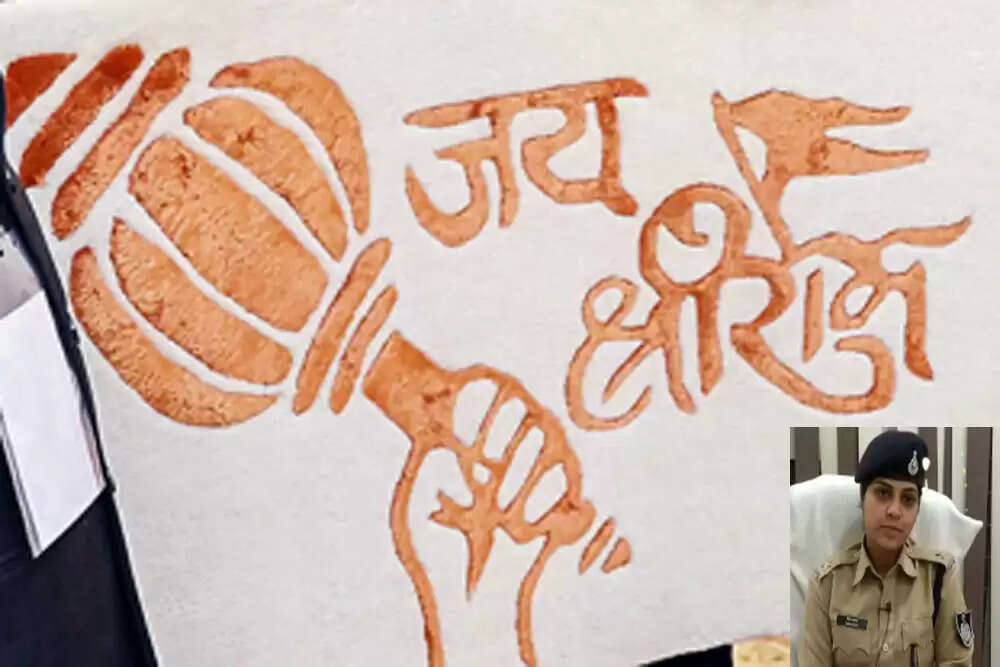 जय
श्रीराम